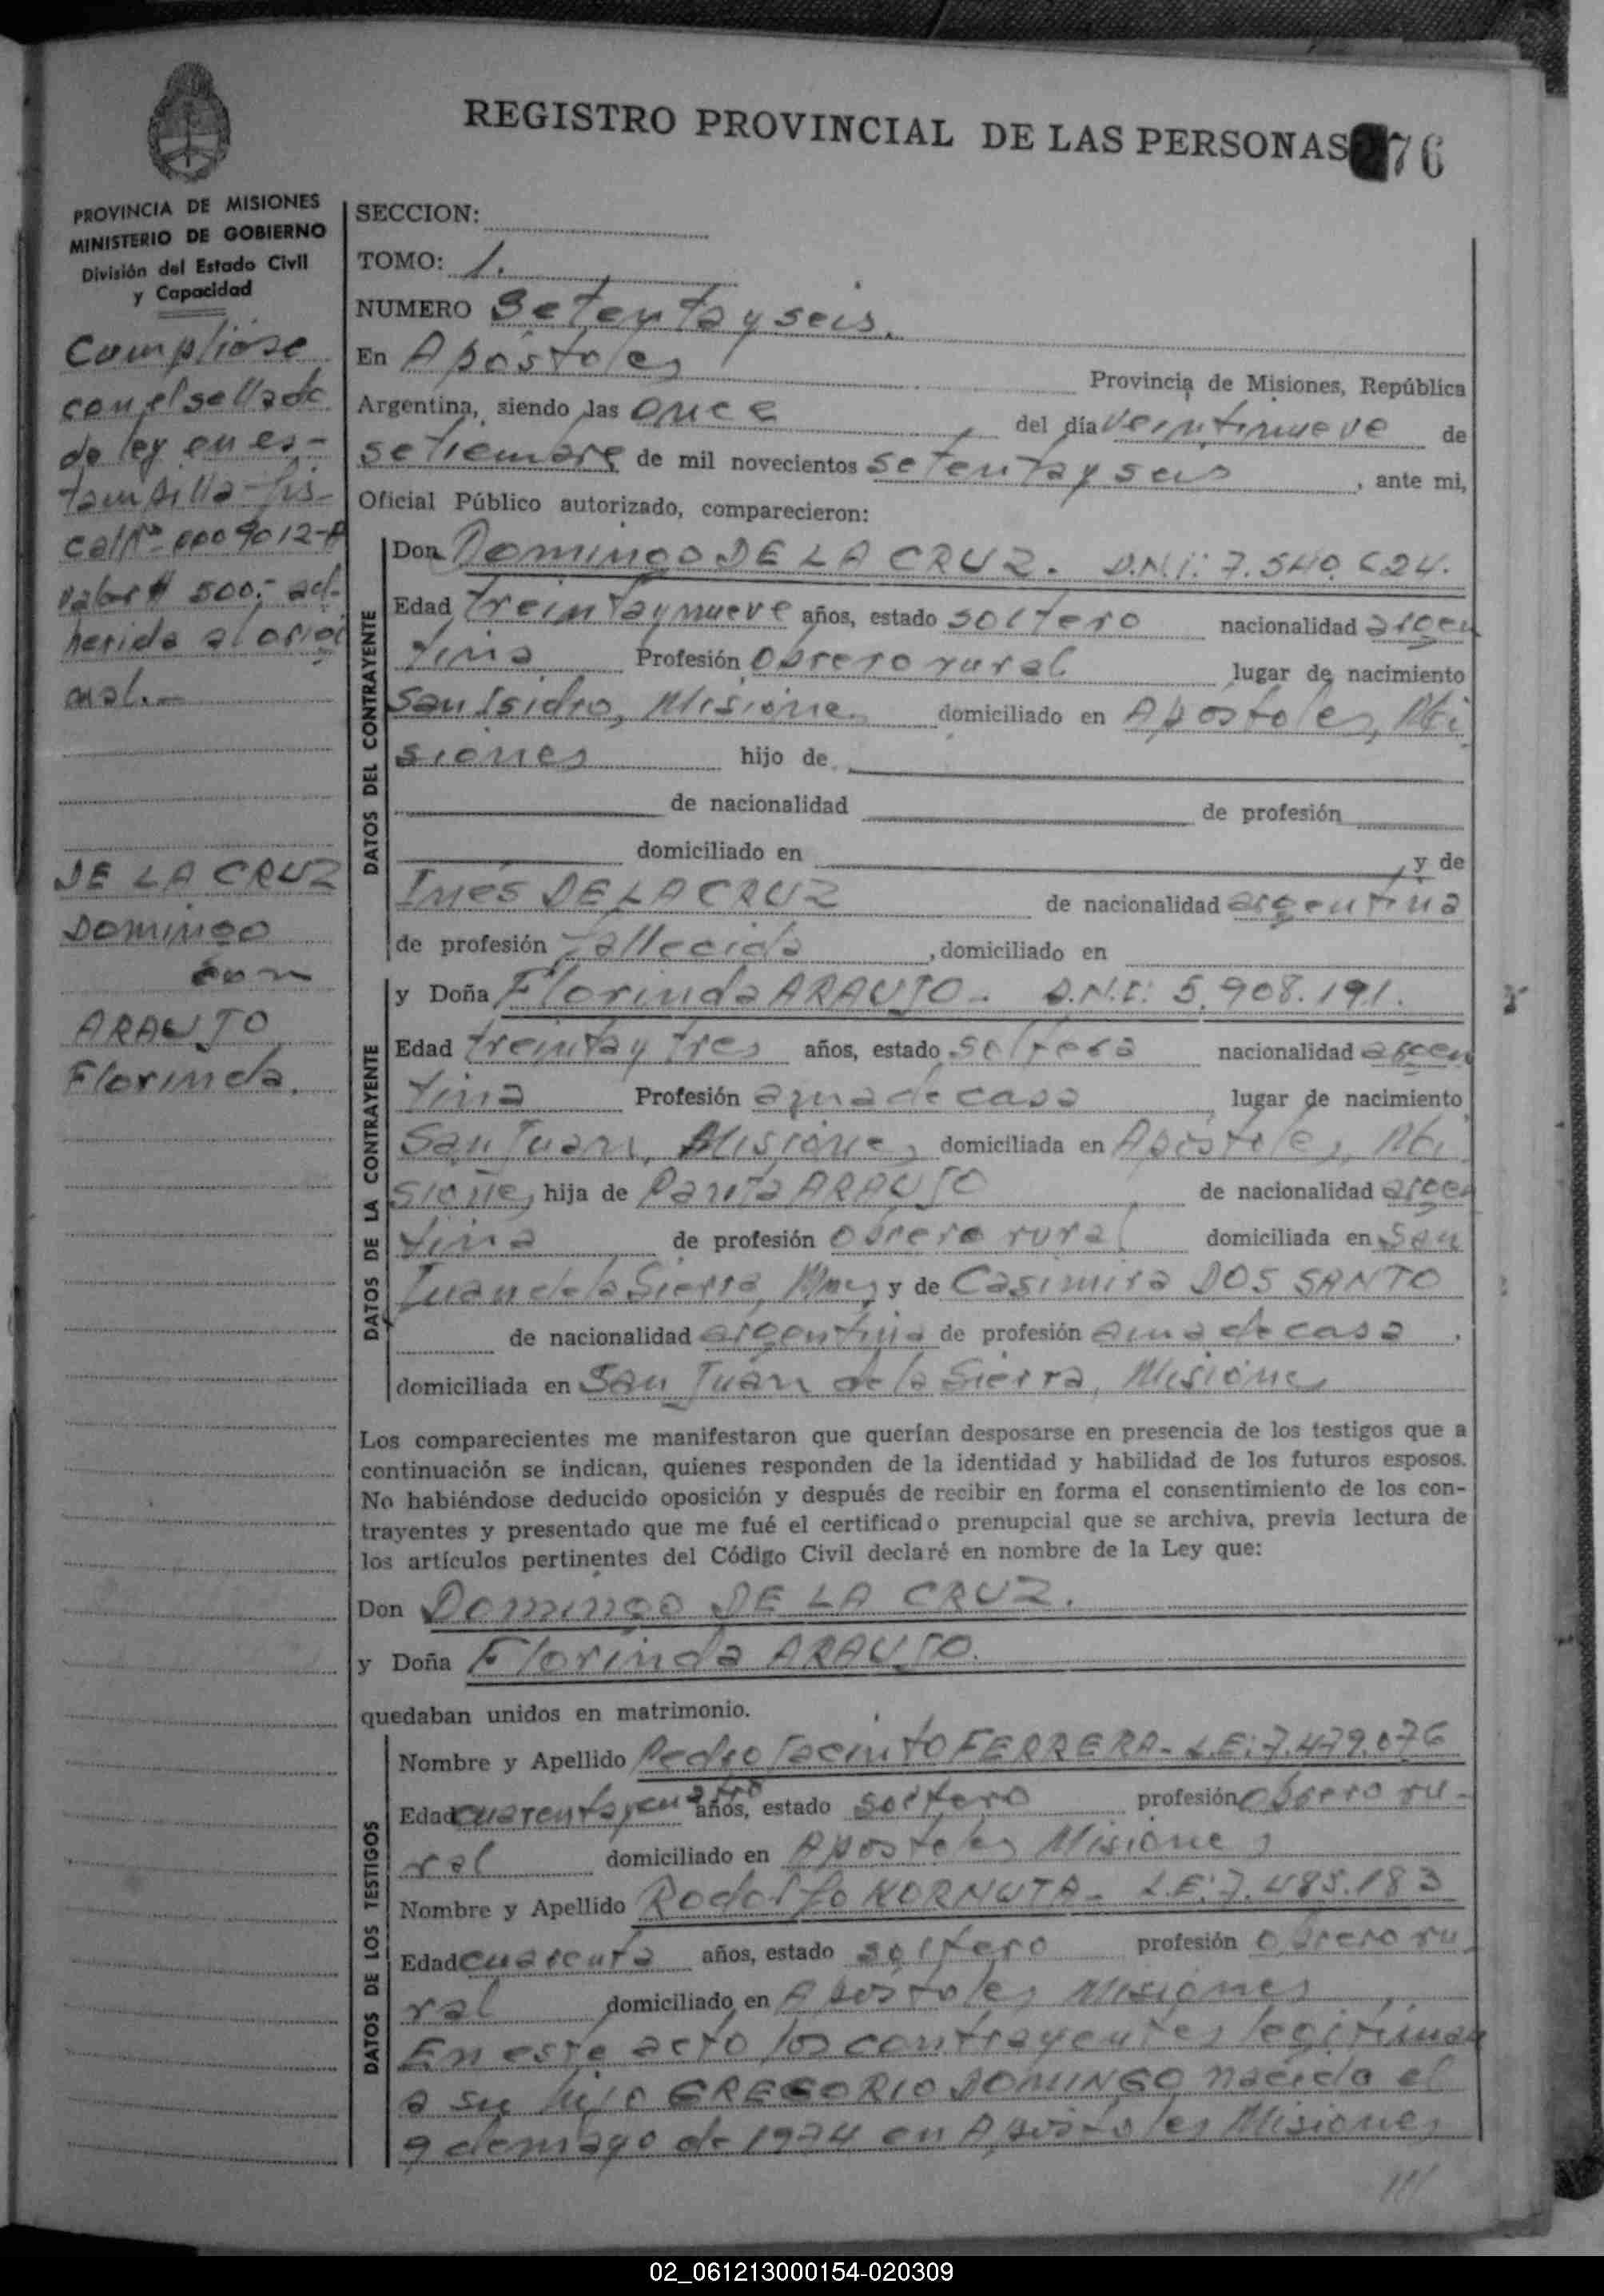 REGISTRO PROVINCIAL DE LAS PERSONAS 76
PROVINCIA DE MISIONES
MINISTERIO DE GOBIERNO
División del Estado Civil
y Capacidad
Cumplióse
con el sellado
de ley en es-
tampilla fis-
cal Nº 0009012-A
valor $ 500.- ad-
herida al origi
nal.-
DE LA CRUZ
Domingo
con
ARAUJO
Florinda.
SECCION:
TOMO: 1.
NUMERO Setenta y seis.
En Apóstoles Provincia de Misiones, República
Argentina, siendo las once del día veintinueve de
setiembre de mil novecientos setenta y seis, ante mi,
Oficial Público autorizado, comparecieron:
DATOS DEL CONTRAYENTE
Don Domingo DE LA CRUZ. D.N.I: 7.540.624.
Edad treinta y nueve años, estado soltero nacionalidad argen
tina Profesión obrero rural lugar de nacimiento
San Isidro, Misiones domiciliado en Apóstoles, Mi
siones hijo de
de nacionalidad de profesión
domiciliado en , y de
Inés DE LA CRUZ de nacionalidad argentina
de profesión fallecida, domiciliado en
DATOS DE LA CONTRAYENTE
y Doña Florinda ARAUJO. D.N.I: 5.908.191.
Edad treinta y tres años, estado soltera nacionalidad argen
tina Profesión ama de casa, lugar de nacimiento
San Juan, Misiones domiciliada en Apóstoles, Mi
siones hija de ARAUJO de nacionalidad argen
tina de profesión obrero rural domiciliada en San
Juan de la Sierra, Mnes y de Casimira DOS SANTO
de nacionalidad argentina de profesión ama de casa.
domiciliada en San Juan de la Sierra, Misiones
Los comparecientes me manifestaron que querían desposarse en presencia de los testigos que a
continuación se indican, quienes responden de la identidad y habilidad de los futuros esposos.
No habiéndose deducido oposición y después de recibir en forma el consentimiento de los con-
trayentes y presentado que me fué el certificado prenupcial que se archiva, previa lectura de
los artículos pertinentes del Código Civil declaré en nombre de la Ley que:
Don Domingo DE LA CRUZ.
y Doña Florinda ARAUJO.
quedaban unidos en matrimonio.
DATOS DE LOS TESTIGOS
Nombre y Apellido Pedro Jacinto FERRERA- L.E: 7.479.076
Edad cuarenta y cuatro años, estado soltero profesión obrero ru-
ral domiciliado en Apóstoles Misiones
Nombre y Apellido Rodolfo KORNUTA- L.E: 7.485.183
Edad cuarenta años, estado soltero profesión obrero ru-
ral domiciliado en Apóstoles Misiones
En este acto los contrayentes legitiman
a su hijo GREGORIO DOMINGO nacido el
9 de mayo de 1974 en Apóstoles Misiones
///
02_061213000154-020309